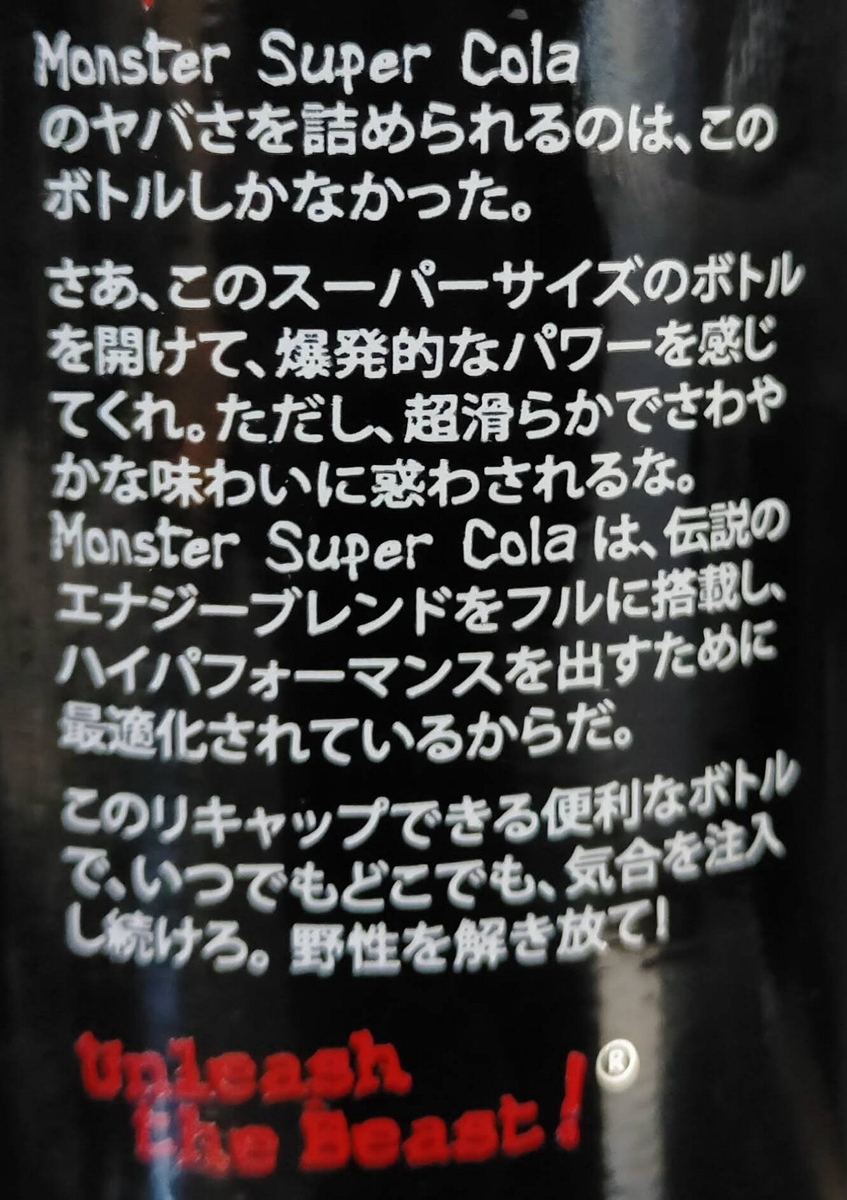 Monster Super Cola
のヤバさを詰められるのは、この
ボトルしかなかった。
さあ、このスーパーサイズのボトル
を開けて、爆発的なパワーを感じ
てくれ。ただし、超滑らかでさわや
かな味わいに惑わされるな。
Monster Super Cola は、伝説の
エナジーブレンドをフルに搭載し、
ハイパフォーマンスを出すために
最適化されているからだ。
このリキャップできる便利なボトル
で、いつでもどこでも、気合を注入
し続けろ。 野性を解き放て!
Unleash
the Beast!®